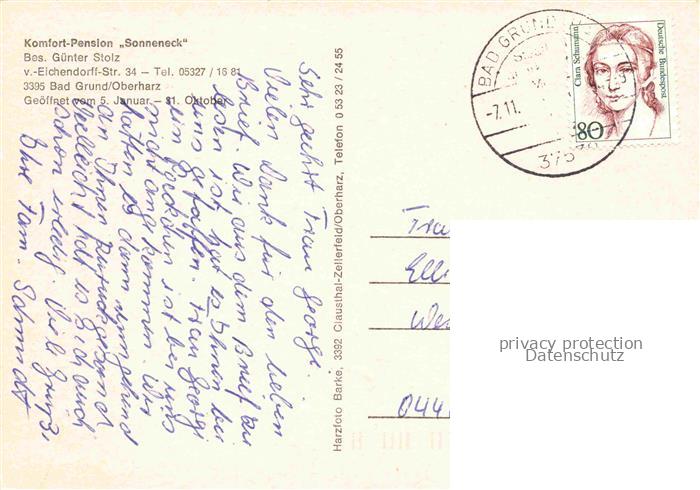 Komfort-Pension „Sonneneck"
Bes. Günter Stolz
v.-Eichendorff-Str. 34 — Tel. 05327 / 16 81
3395 Bad Grund/Oberharz
Geöffnet vom 5. Januar — 31. Oktober
Sehr geehrte Frau George.
Vielen Dank für den lieben
Brief. Wie aus dem Brief zu
lesen ist hat es Ihnen bei
uns gefallen. Frau Georgi
ein Päckchen ist bei uns
nicht angekommen. Wir
hätten es dann umgehend
an Ihnen zurückgesandt
Vielleicht hat es sich auch
schon erledigt. Viele Grüße
Ihre Fam. Schmidt
Harzfoto Barke, 3392 Clausthal-Zellerfeld/Oberharz, Telefon 0 53 23 / 24 55
BAD GRUND
-7.11.
Clara Schumann
Deutsche Bundespost
80
Elli
044
privacy protection
Datenschutz